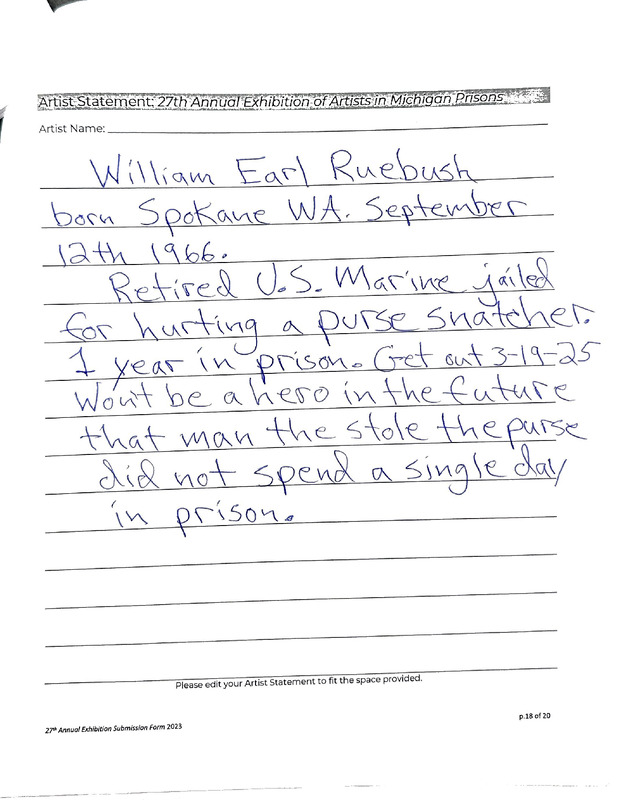 Artist Statement: 27th Annual Exhibition of Artists in Michigan Prisons
Artist Name:
William Earl Ruebush
born Spokane WA. September
12th 1966.
Retired U.S. Marine jailed
for hurting a purse snatcher.
1 year in prison. Get out 3-19-25
Won't be a hero in the future
that man the stole the purse
did not spend a single day
in prison.
Please edit your Artist Statement to fit the space provided.
p.18 of 20
27th Annual Exhibition Submission Form 2023